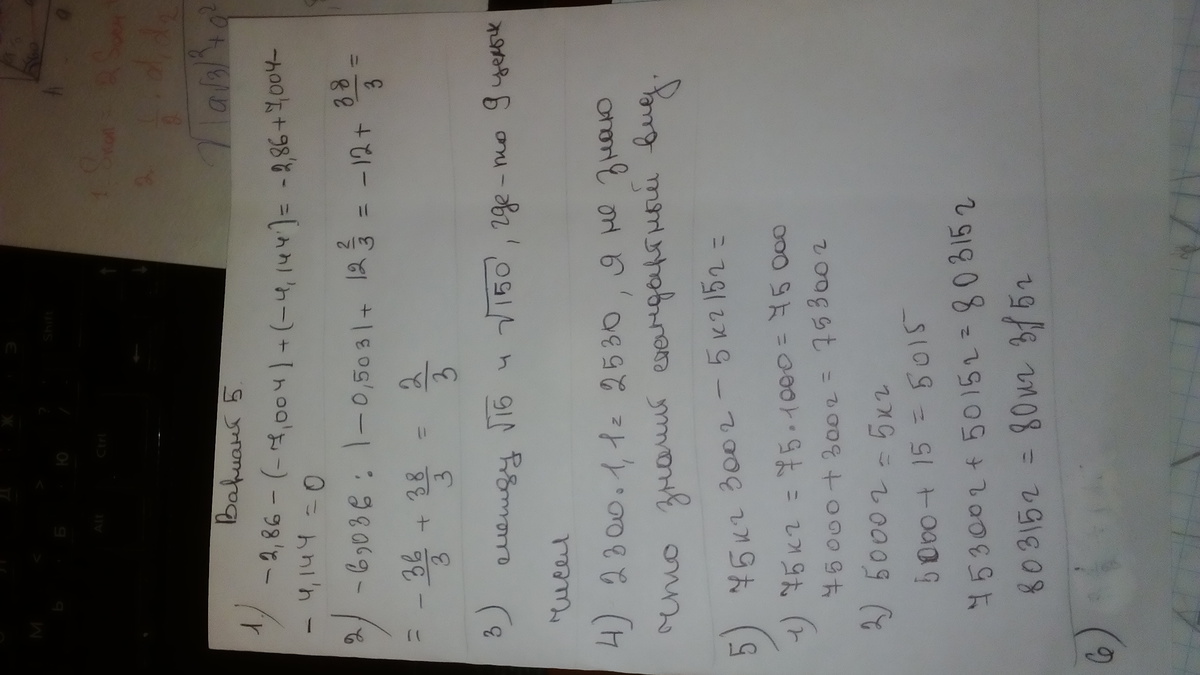 Вариант 5.
1) -2,86 - (-7,004) + (-4,144) = -2,86 + 7,004 -
- 4,144 = 0
2) -6,036 : |-0,503| + 12 2/3 = -12 + 38/3 =
= - 36/3 + 38/3 = 2/3
3) между √15 и √150, где-то 9 целых
чисел
4) 2300 · 1,1 = 2530, я не знаю
что значит стандартный вид.
5) 75кг 300г - 5кг15г =
1) 75кг = 75·1000 = 75 000
75000+300г = 75300г
2) 5000г = 5кг
5000 + 15 = 5015
75300г + 5015г = 80315г
80315г = 80кг 315г
6)
Shift
Ctrl
Alt